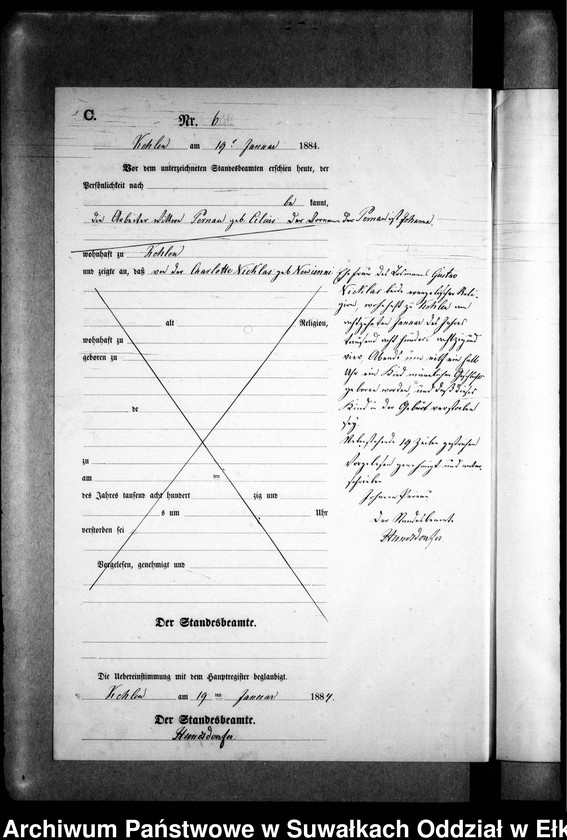 C.
Nr. 6
Kehlen am 19t Januar 1884.
Vor dem unterzeichneten Standesbeamten erschien heute, der
Persönlichkeit nach
be kannt,
die Arbeiter Wittwe Pernau geb. Der Vorname der Pernau ist Johanna,
wohnhaft zu Kehlen
und zeigte an, daß von der Charlotte Nicklas geb
Ehefrau des Losmanns Gustav
Nicklas beide evangelischer Reli-
gion, wohnhaft zu Kehlen am
achtzehnten Januar des Jahres
tausend acht hundert achtzig und
vier Abends um ein halb
Uhr ein Kind männlichen Geschlechts
geboren worden, und daß dieses
Kind in der Geburt verstorben
sei.
Nebenstehende 19 Zeilen gestrichen
Vorgelesen genehmigt und unter-
schrieben
Johanna Pernau
Der Standesbeamte
alt Religion,
wohnhaft zu
geboren zu
de
zu
am ten
des Jahres tausend acht hundert zig und
s um Uhr
verstorben sei
Vorgelesen, genehmigt und
Der Standesbeamte.
Die Uebereinstimmung mit dem Hauptregister beglaubigt.
Kehlen am 19 ten Januar 1884.
Der Standesbeamte.
Archiwum Państwowe w Suwałkach Oddział w Ełk